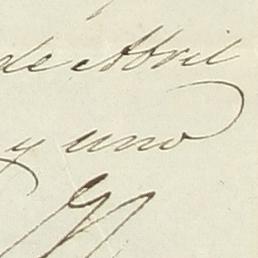 de Abril
y uno